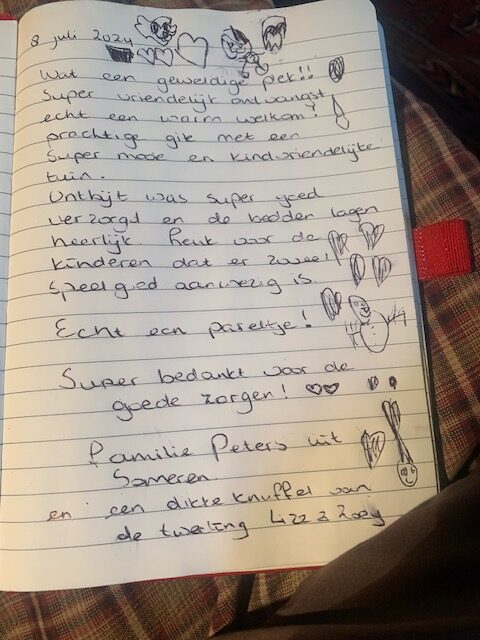 8 juli 2024
Wat een geweldige plek!!
Super vriendelijk ontvangst
echt een warm welkom!
prachtige gite met een
Super mooie en kindvriendelijke
tuin.
Ontbijt was super goed
verzorgd en de bedden lagen
heerlijk. Leuk voor de
kinderen dat er zoveel
speelgoed aanwezig is.
Echt een pareltje!
Super bedankt voor de
goede zorgen!
Familie Peters uit
Someren.
en een dikke knuffel van
de tweeling Lizz & Zoey